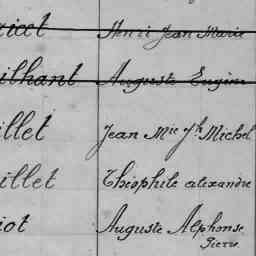 ricet Henri Jean Marie
ilhant Auguste Eugène
illet Jean Mie Jh Michel
illet Théophile alexandre
iot Auguste Alphonse
Pierre